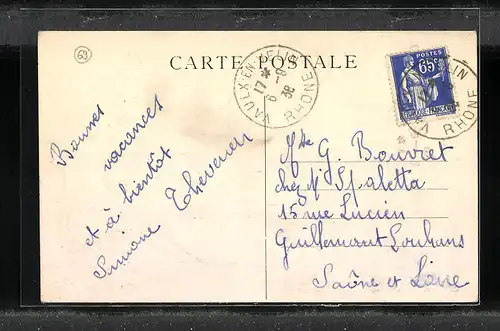 63
CARTE POSTALE
VAULX-EN-VELIN
17 *
6 -8
38
RHONE
POSTES
65c
REPUBLIQUE FRANÇAISE
RHONE
Bonnes
vacances
et à bientôt
Simone Thevenen
Mlle G. Bouvret
chez Mr Spaletta
15 rue Lucien
Guillemaut Louhans
Saône et Loire